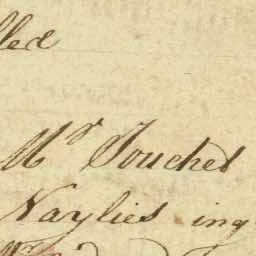 lled
Mr Touchet
Naylies ing
Mr